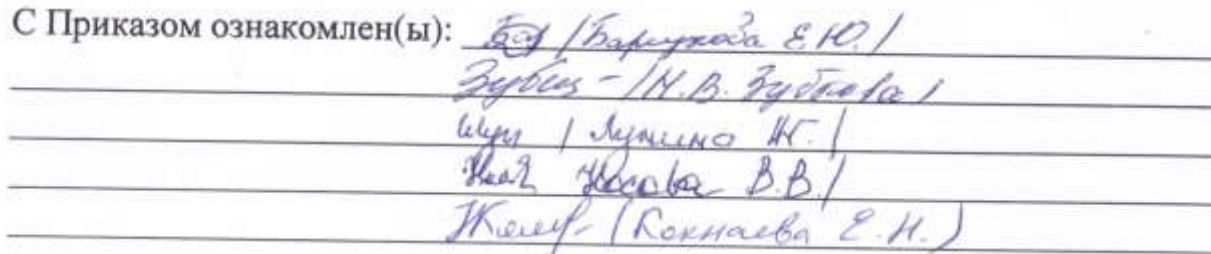 С Приказом ознакомлен(ы): /Барсукова Е.Ю./
/Н.В. Зубкова/
/ Лунина
Носова В.В./
(Кокнаева Е.Н.)